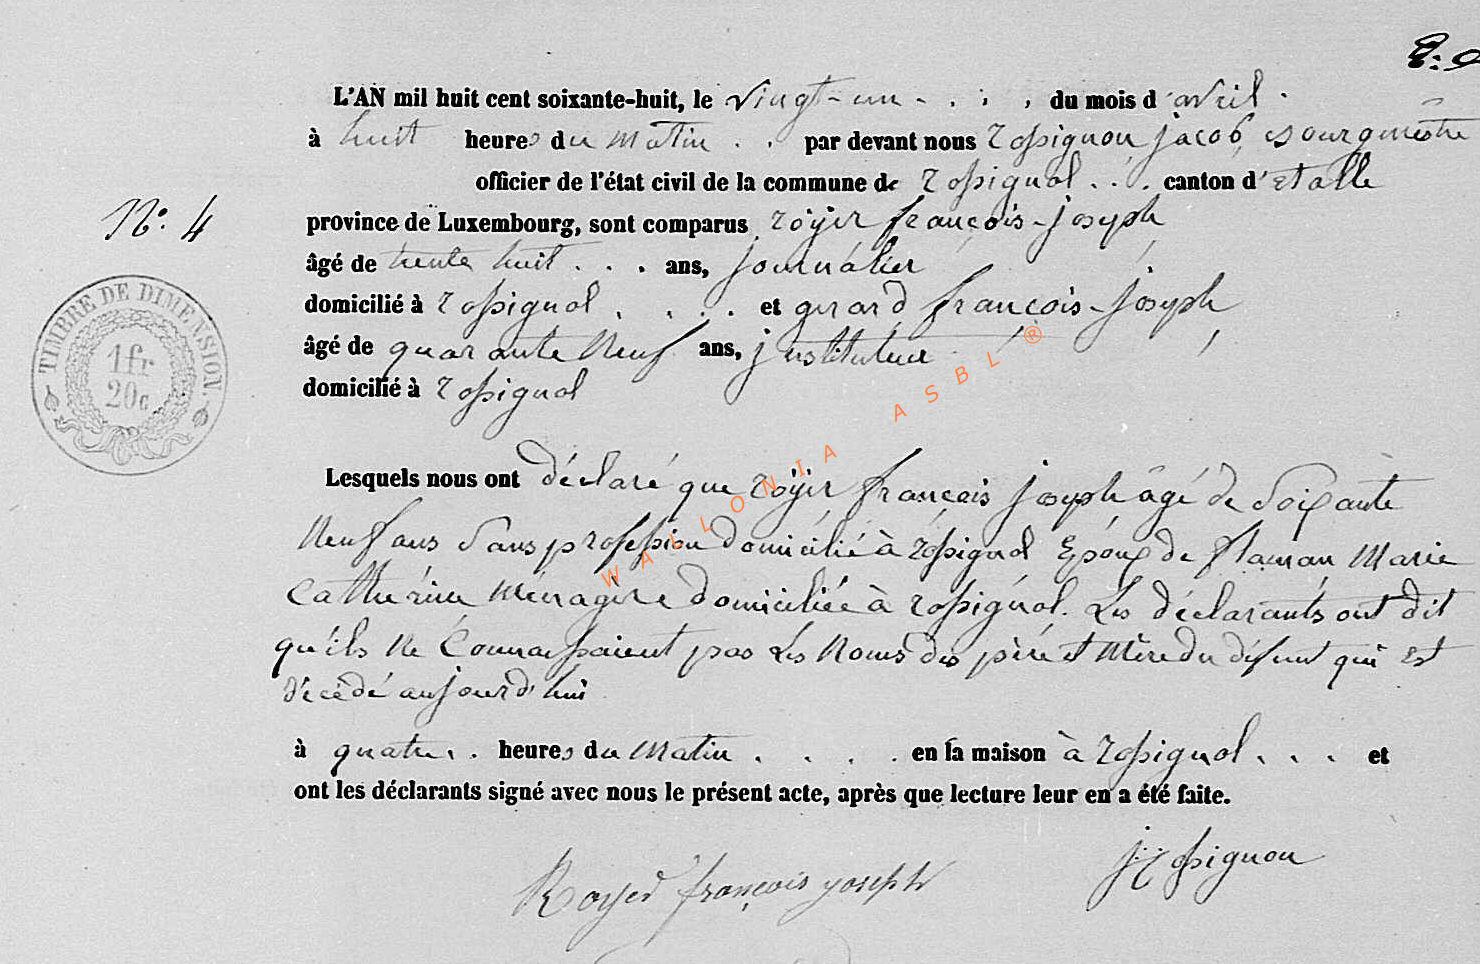 L'AN mil huit cent soixante-huit, le vingt-un du mois d'avril
à huit heures du matin par devant nous Rossignon jacob, Bourgmestre
officier de l'état civil de la commune de Rossignol canton d'etalle
N°. 4
province de Luxembourg, sont comparus royer françois-joseph
âgé de trente huit ans, journalier
TIMBRE DE DIMENSION.
1fr
20c
domicilié à Rossignol et gerard françois-joseph,
âgé de quarante Neuf ans, instituteur
domicilié à Rossignol
Lesquels nous ont déclaré que royer françois joseph âgé de soixante
Neuf ans sans profession domicilié à rossignol Epoux de flaman Marie
Catherine Ménagère domiciliée à rossignol. Les déclarants ont dit
qu'ils ne Connaissaient pas Les Noms des père et Mère du défunt qui Est
décédé aujourd'hui
à quatre heures du Matin en la maison à Rossignol et
ont les déclarants signé avec nous le présent acte, après que lecture leur en a été faite.
J Rossignon
Royer françois joseph
WALLONIA ASBL ®